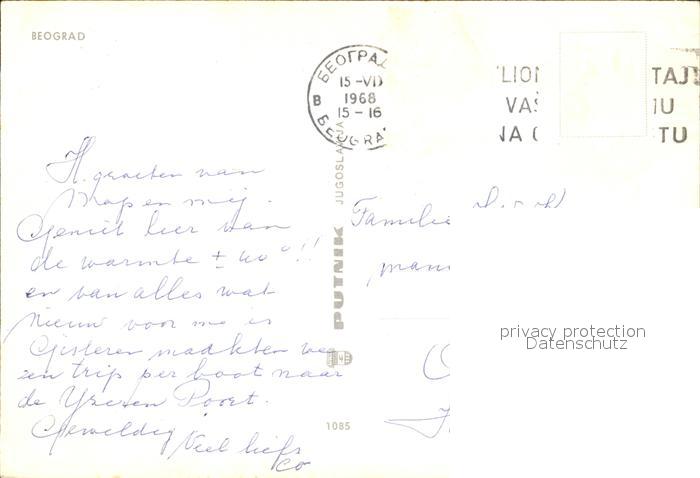 BEOGRAD
БЕОГРАД
15-VII
1968
15-16
B
BEOGRA
TAJ
VAŠ
NA
TU
JUGOSLAVIJA
PUTNIK
1085
H. groeten van
en mij.
Geniet hier van
de warmte ± 40°!!
en van alles wat
nieuw voor me is
Gisteren maakten we
een trip per boot naar
de IJzeren Poort.
Geweldig Veel liefs
Co
Familie
privacy protection
Datenschutz